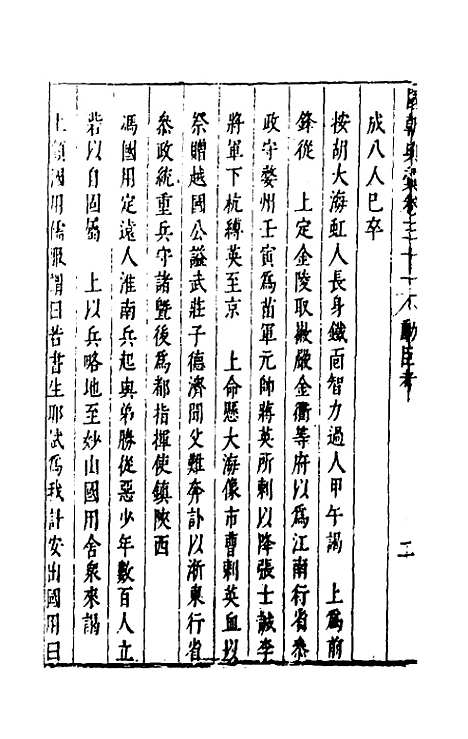 國朝典彙卷三十一 功臣考 二
成八人已卒
按胡大海虹人長身鐵面智力過人甲午謁 上為前
鋒從 上定金陵取嚴金衢等府以為江南行省叅
政守婺州壬寅為苗軍元帥蔣英所刺以降張士誠李
將軍下杭縛英至京 上命懸大海像市曹刺英血以
祭贈越國公謚武莊子德濟聞父難奔訃以浙東行省
叅政統重兵守諸暨後為都指揮使鎮陝西
馮國用定遠人淮南兵起與弟勝從惡少年數百人立
砦以自固 上以兵略地至妙山國用舍衆來謁
上顧國用儒服謂曰若書生耶試為我計安出國用曰